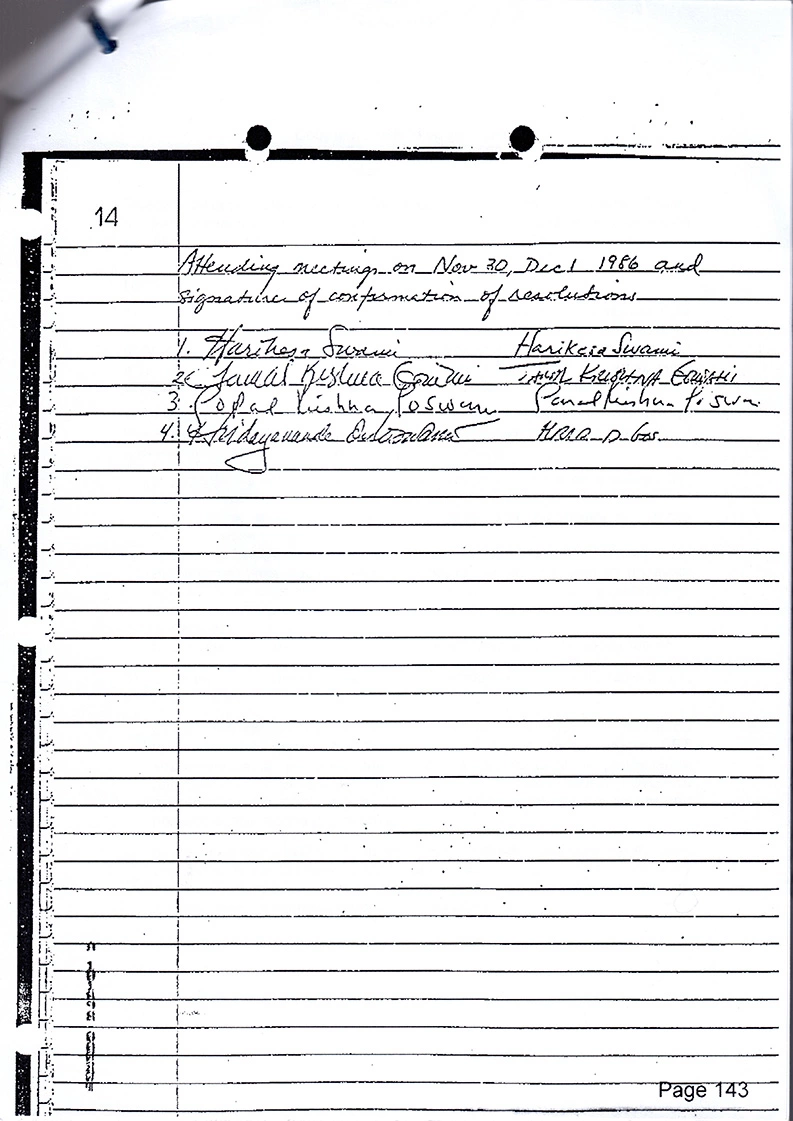 14
Attending meetings on Nov 30, Dec 1 1986 and
signature of confirmation of resolutions
1. Harikesa Swami Harikesa Swami
2. Tamal Krishna Goswami TAMAL KRISHNA GOSWAMI
3. Gopal Krishna Goswami Gopal Krishna Goswami
4. Hridayananda Goswami HRD D Gos
Page 143